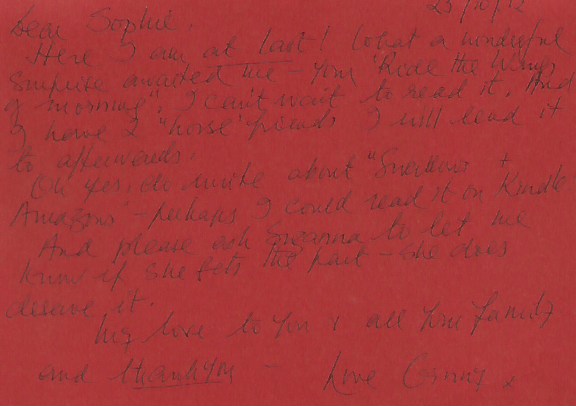 23/10/12
Dear Sophie,
Here I am at last! What a wonderful
surprise awaited me - your 'Ride the Wings
of morning'. I can't wait to read it. And
I have 2 "horse" friends I will lend it
to afterwards.
Oh yes, do write about "Swallows +
Amazons" - perhaps I could read it on Kindle
And please ask to let me
know if she gets the part - she does
deserve it.
My love to you & all your family
and thank you - Love Ginny x